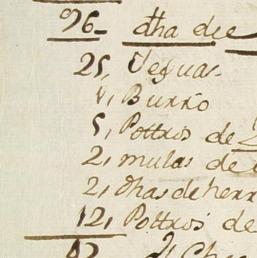 96 - dha de
25, Yeguas
1, Burro
5, Pottros de 2
2, mulas de
2, dhas de herr
12, Pottros de